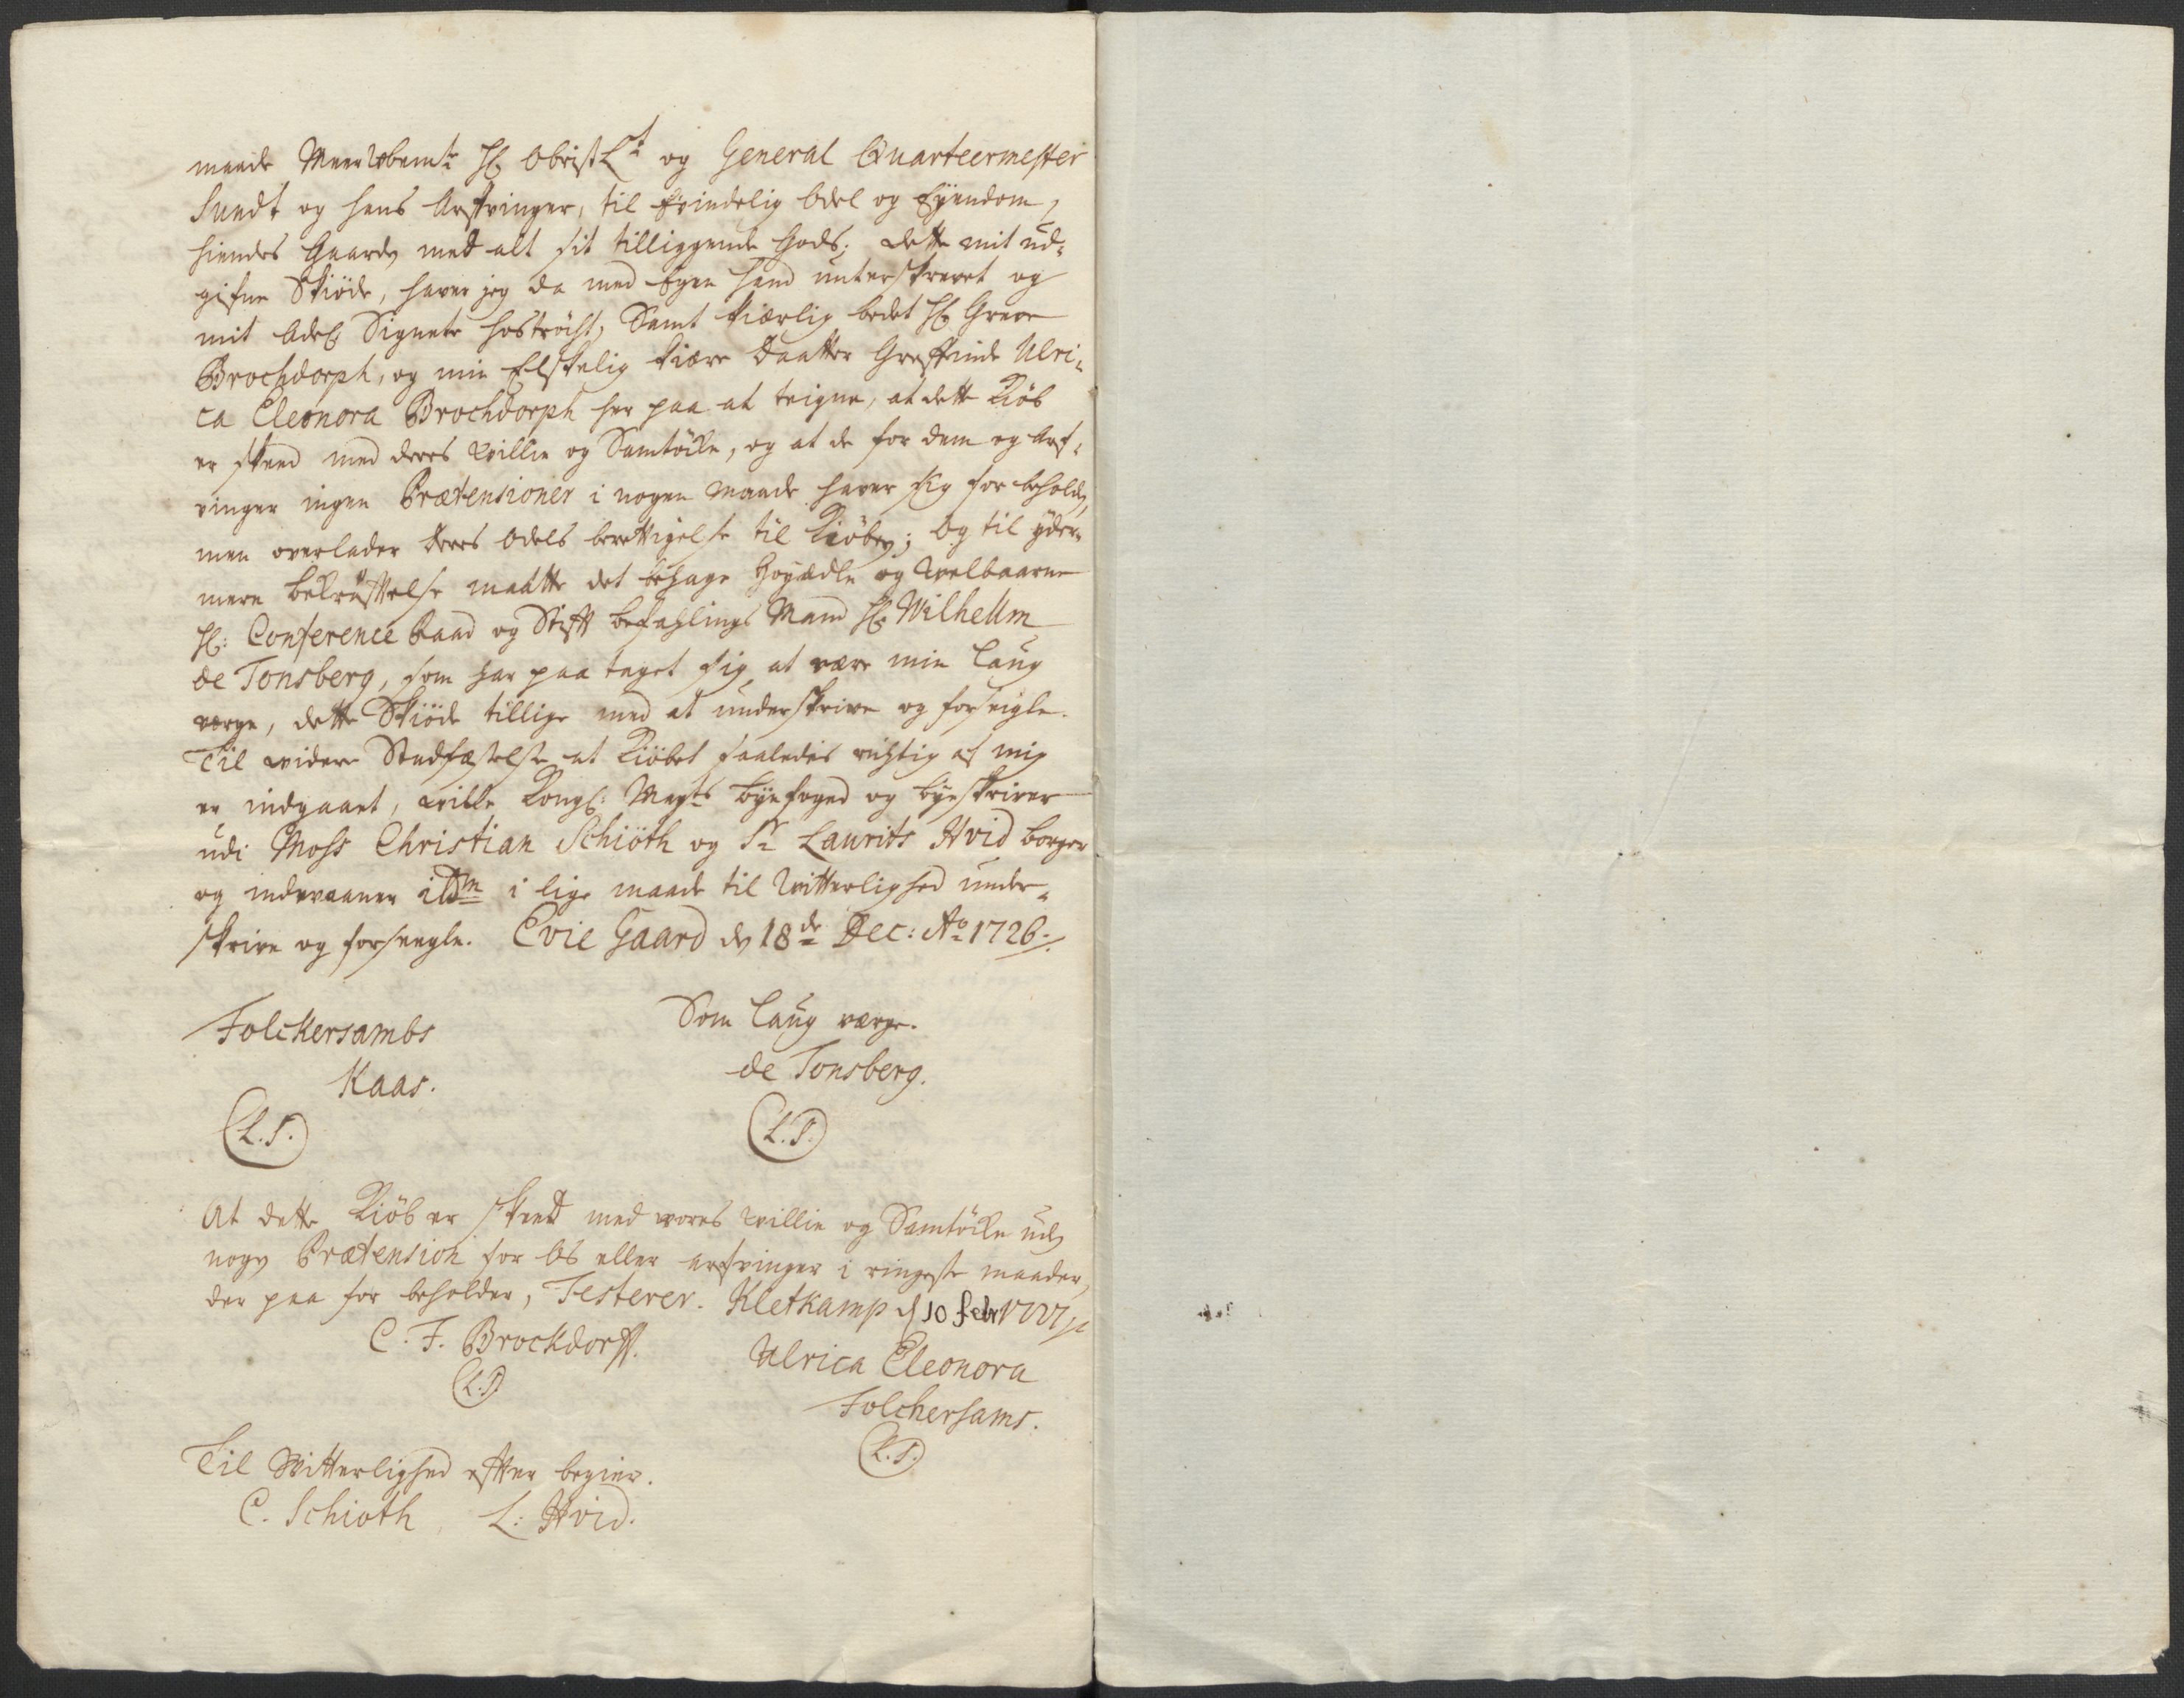 maade Meerwbemte Hr Obrist Lt og General Quarteermester
Sundt og hans Arfvinger, til Evindelig Odel og Eyendom,
hiendes Gaarde med alt sit tilliggende Gods; dette mit ud-
gifne Skiöde, haver jeg da med Egen hand unterskrevet og
mit Adel Signete hoströcht, Samt kiærlig bedet Hr Greve
Brochdorph, og min Elskelig kiære Daatter Greffinde Ulri-
ca Eleonora Brochdorph her paa at teigne, at dette Kiöb
er skeed med deres Willie og Samtöcke, og at de for dem og Arf-
vinger ingen Prætensioner i nogen maade haver sig forbeholden,
men overlader deres Odels berettigelse til Kiöberen; Og til yder-
mere bekræfftelse maatte det behage Hoyædle og Welbaarne
Hr: Conference Raad og Stifft befahlings Mand Hr Wilhellm
de Tonsberg, som har paa taget sig at være min Laug
værge, dette Skiöde tillige med at underskrive og forseigle.
Til widere Stadfæstelse at Kiöbet saaledes richtig af mig
er indgaaet, wille Kongl: Mayts Byefoged og Byeskriver
udi Moss Christian Schiöth og Sr Laurits Hvid borger
og indvaaner ibdm i lige maade til Witterlighed under-
skrive og forseegle. Evie Gaard den 18de Dec: Ao 1726.
Folckersambs Som Laug værge.
Kaas. de Tonsberg.
(L.S.) (L.S.)
At dette Kiöb er skeed med vores Willie og Samtöcke uden
nogen Prætension for Os eller arfvinger i ringeste maader,
der paa for beholder, Testerer. Kletkamp d 10 Febr 1727
C. F. Brockdorff. Ulrica Eleonora
(L.S.) Folchersams.
(L.S.)
Til Witterlighed effter begier.
C. Schioth, L: Hvid.